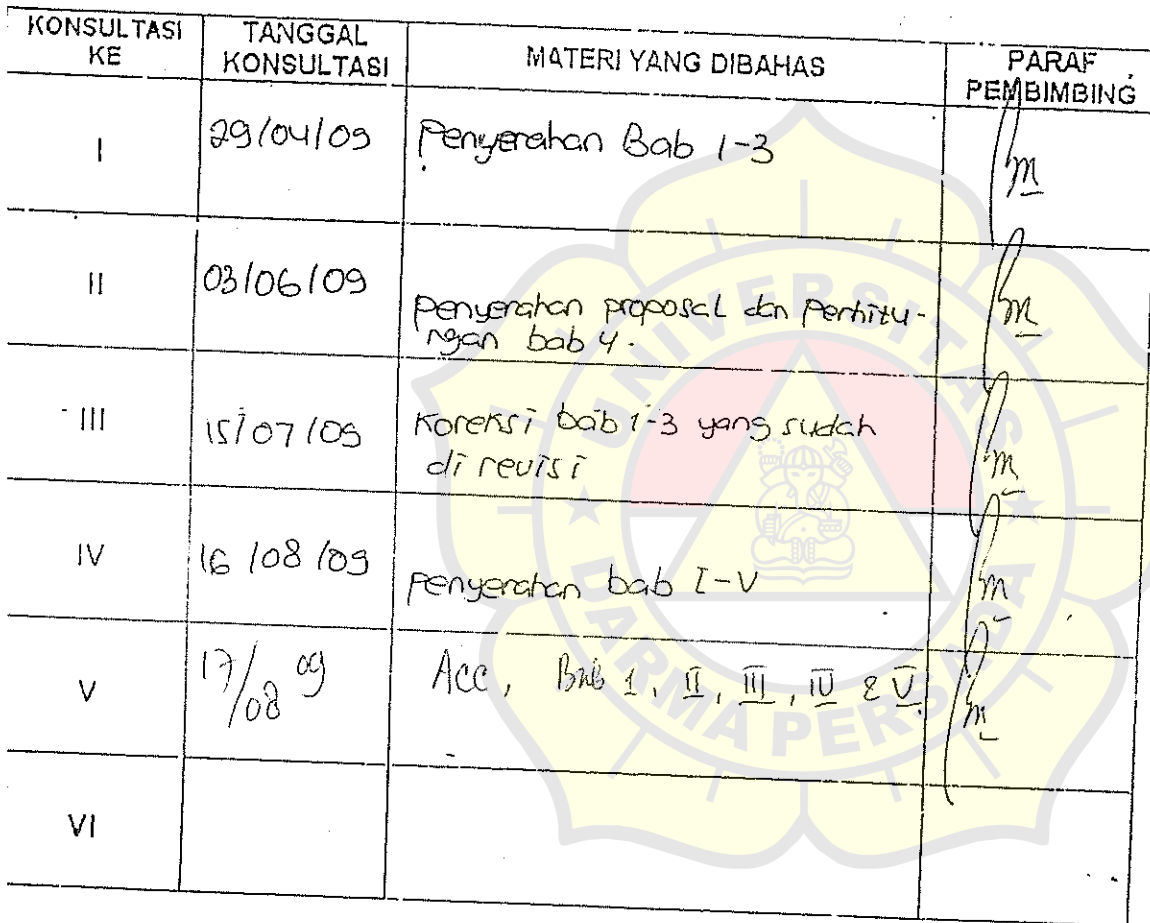 KONSULTASI KE
TANGGAL KONSULTASI
MATERI YANG DIBAHAS
PARAF PEMBIMBING
I
29/04/09
Penyerahan Bab 1-3
II
03/06/09
Penyerahan proposal dan Perhitu-
ngan bab 4.
III
15/07/09
Koreksi bab 1-3 yang sudah
di revisi
IV
16/08/09
Penyerahan bab I-V
V
17/08 09
Acc, Bab 1, II, III, IV & V.
VI
UNIVERSITAS
DARMA PERSADA